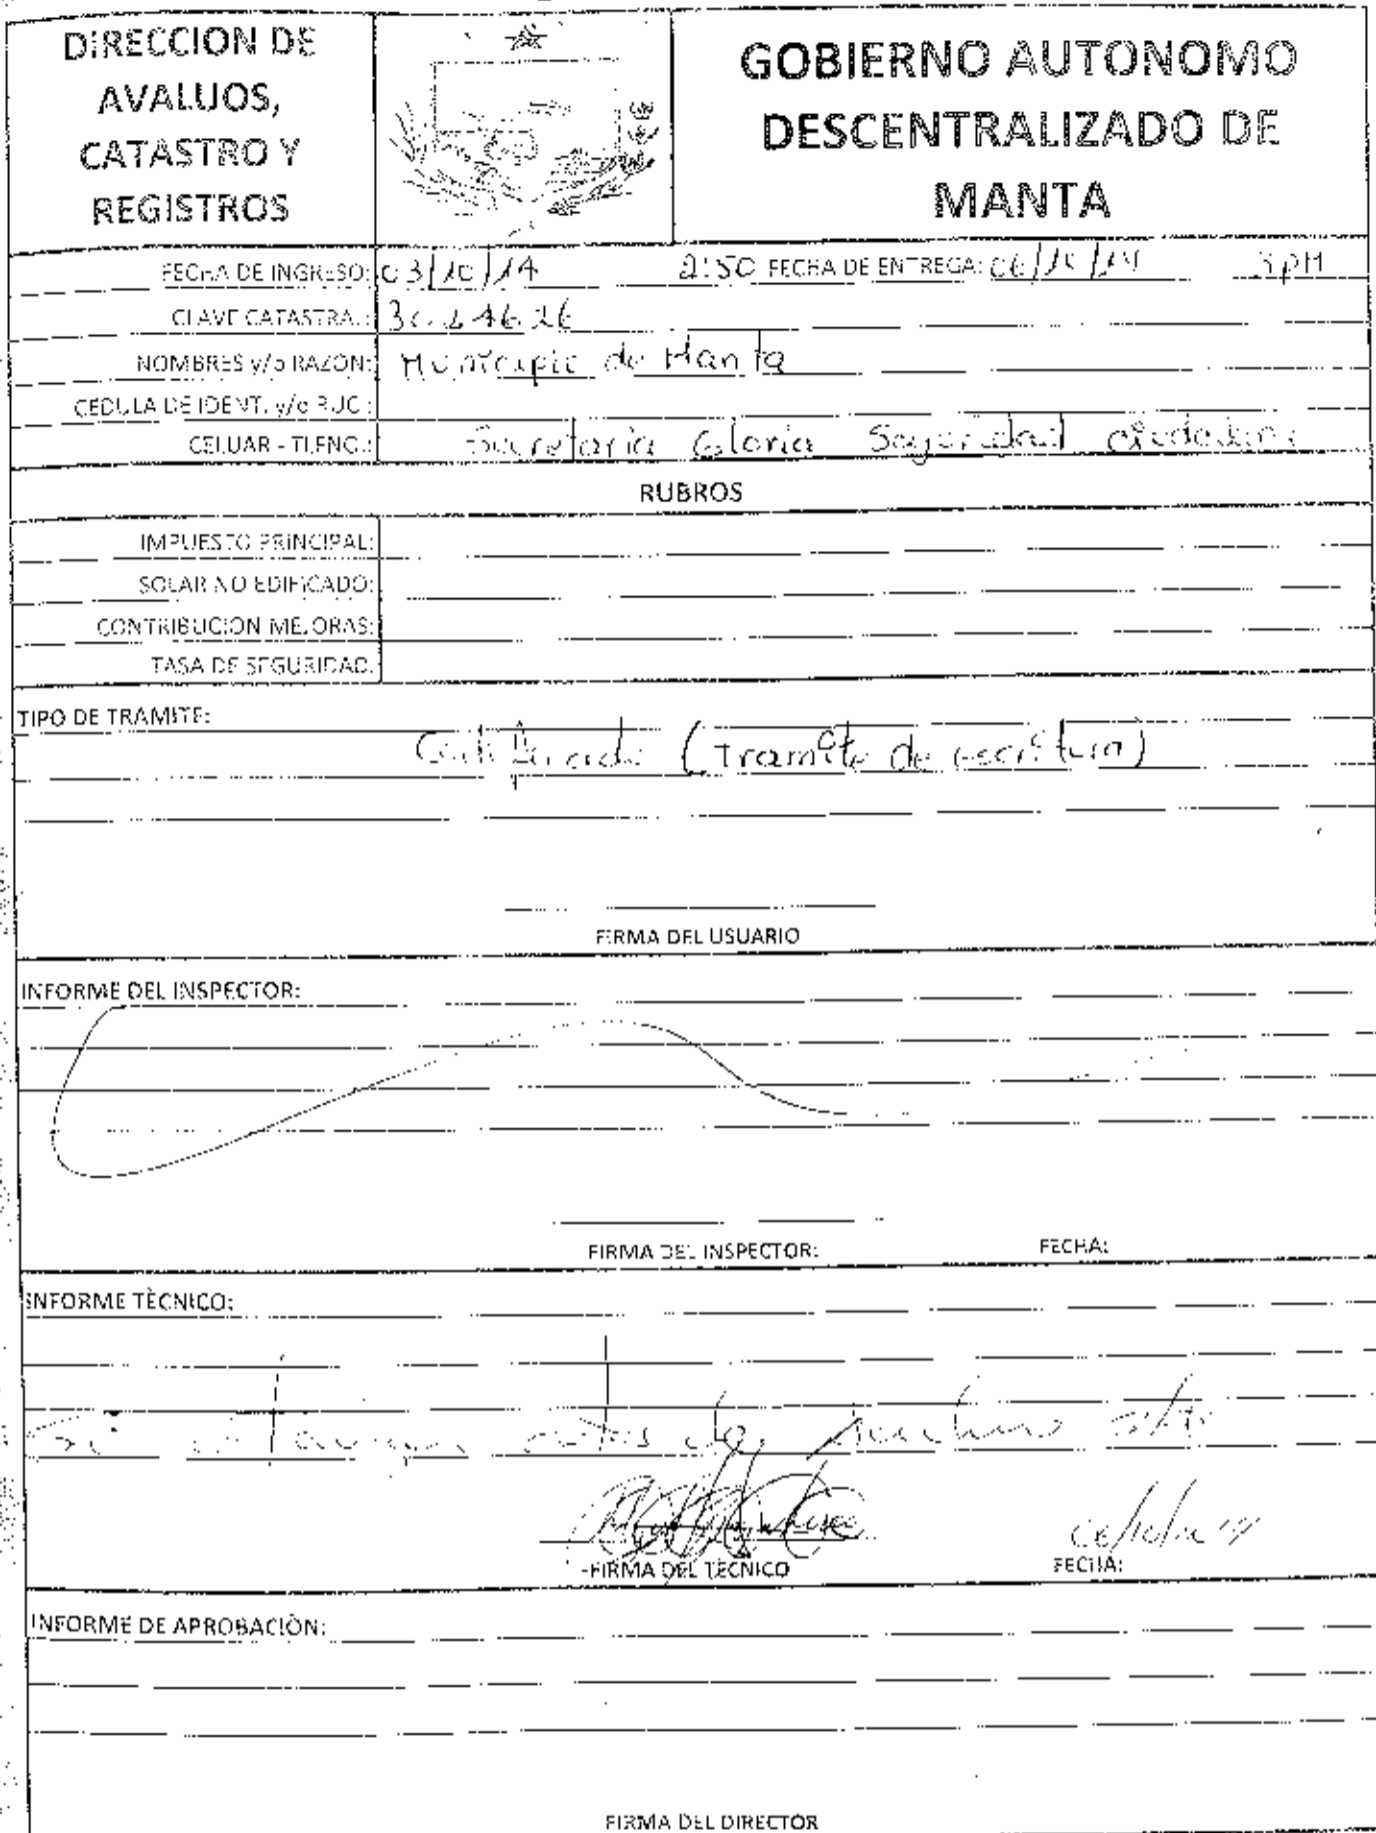 DIRECCION DE
AVALUOS,
CATASTRO Y
REGISTROS
GOBIERNO AUTONOMO
DESCENTRALIZADO DE
MANTA
FECHA DE INGRESO: 03/10/14 2:50 FECHA DE ENTREGA: 06/10/14 3pm
CLAVE CATASTRAL:
NOMBRES y/o RAZON: Municipio de Manta
CEDULA DE IDENT. y/o RUC.:
CELUAR - TLFNO.: Secretaria Gloria Seguridad ciudadana
RUBROS
IMPUESTO PRINCIPAL:
SOLAR NO EDIFICADO:
CONTRIBUCION MEJORAS:
TASA DE SEGURIDAD:
TIPO DE TRAMITE:
Certificado (Tramite de escritura)
FIRMA DEL USUARIO
INFORME DEL INSPECTOR:
FIRMA DEL INSPECTOR: FECHA:
INFORME TÈCNICO:
FIRMA DEL TÈCNICO FECHA:
INFORME DE APROBACIÒN:
FIRMA DEL DIRECTOR